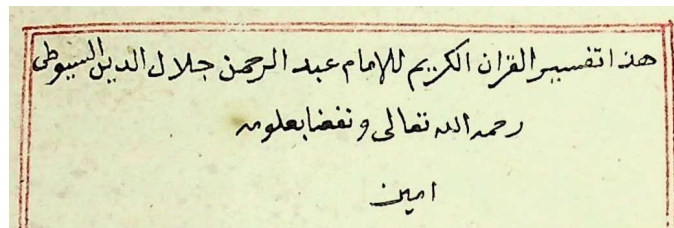 هذا تفسير القران الكريم للامام عبد الرحمن جلال الدين السيوطى
رحمه الله تعالى ونفعنا بعلومه
امين